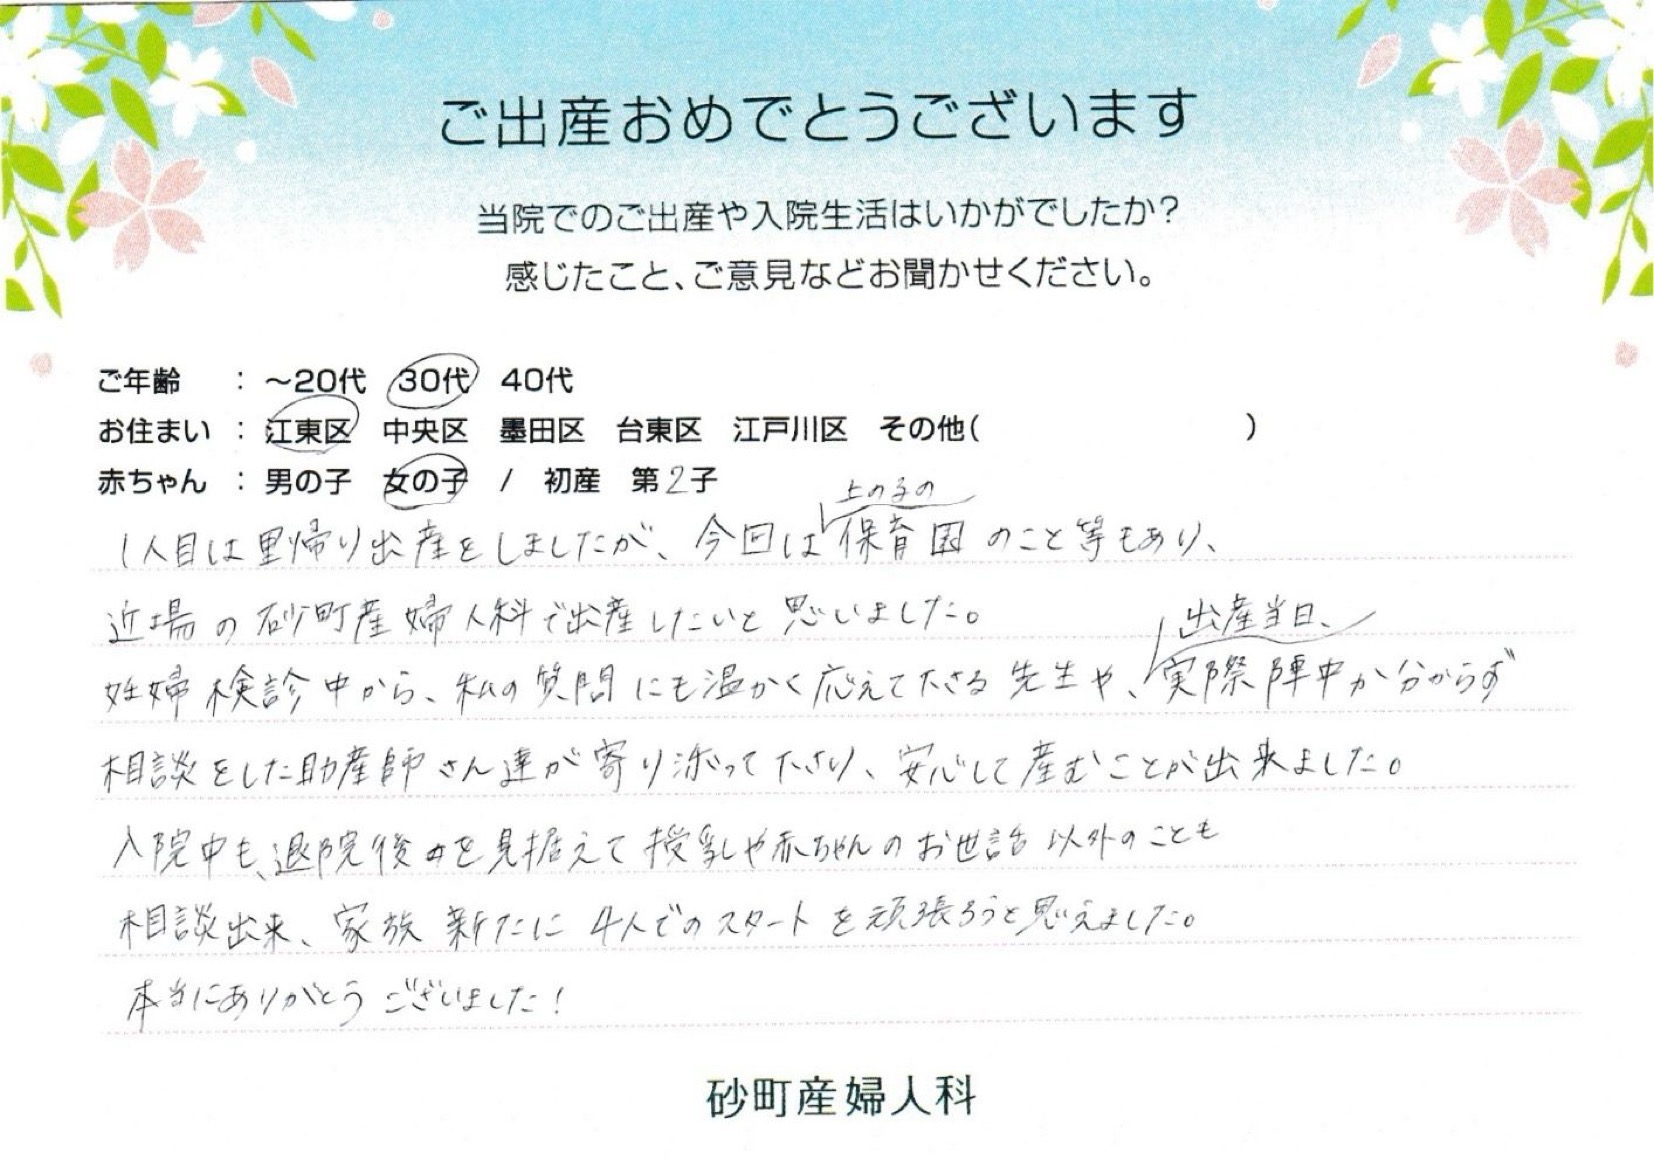 ご出産おめでとうございます
当院でのご出産や入院生活はいかがでしたか?
感じたこと、ご意見などお聞かせください。
ご年齢 : ～20代 30代 40代
お住まい : 江東区 中央区 墨田区 台東区 江戸川区 その他( )
赤ちゃん : 男の子 女の子 / 初産 第2子
上の子の
1人目は里帰り出産をしましたが、今回は保育園のこと等もあり、
近場の砂町産婦人科で出産したいと思いました。
出産当日、
妊婦検診中から、私の質問にも温かく応えて下さる先生や、実際陣中か分からず
相談をした助産師さん達が寄り添って下さり、安心して産むことが出来ました。
入院中も、退院後を見据えて授乳や赤ちゃんのお世話以外のことも
相談出来、家族新たに4人でのスタートを頑張ろうと思えました。
本当にありがとうございました!
砂町産婦人科